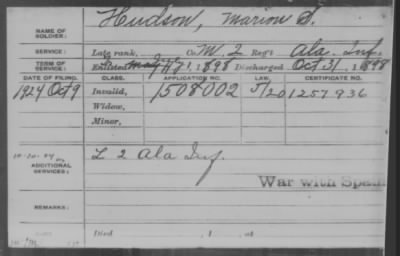 NAME OF SOLDIER: Hudson, Marion S.
SERVICE: Late rank, Co. M. 2 Reg't Ala. Inf.
TERM OF SERVICE: Enlisted 1, 1898 Discharged Oct 31, 1898
DATE OF FILING. CLASS. APPLICATION NO. LAW. CERTIFICATE NO.
1924 Oct 9 Invalid, 1508002 5/20 1257936
Widow,
Minor,
ADDITIONAL SERVICES: L 2 Ala Inf.
War with Spain
REMARKS:
Died , 1 , at